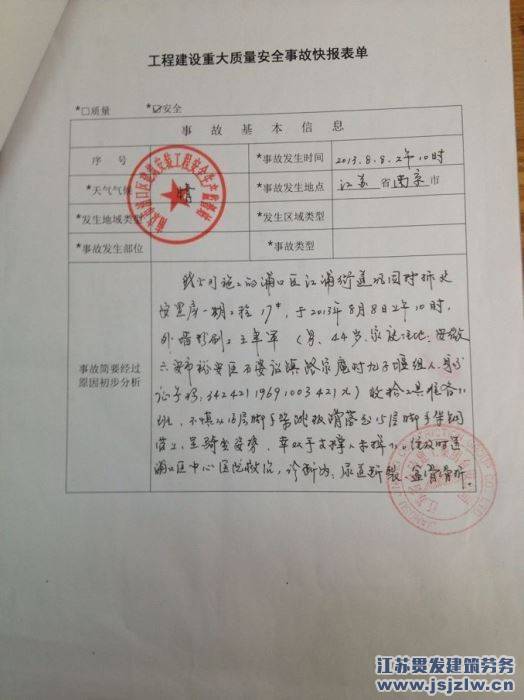 工程建设重大质量安全事故快报表单
*□质量 *☑安全
事故基本信息
序号 *事故发生时间 2013.8.8.上午10时
*天气气候 晴 *事故发生地点 江苏省南京市
*发生地域类型 *发生区域类型
*事故发生部位 *事故类型
事故简要经过
原因初步分析
我公司施工的浦口区江浦街道巩固村
安置房一期工程17#,于2013年8月8日上午10时,
(男,44岁,家庭住地:安徽
六安市裕安区
34242119691003421X)收拾工具准备下
班,不慎从16层脚手架跳板滑落到15层脚手架钢
管上,呈骑坐姿势,
浦口区中心医院救治,诊断为:尿道断裂、盆骨骨折。
江苏贯发建筑劳务
www.jsjzlw.cn